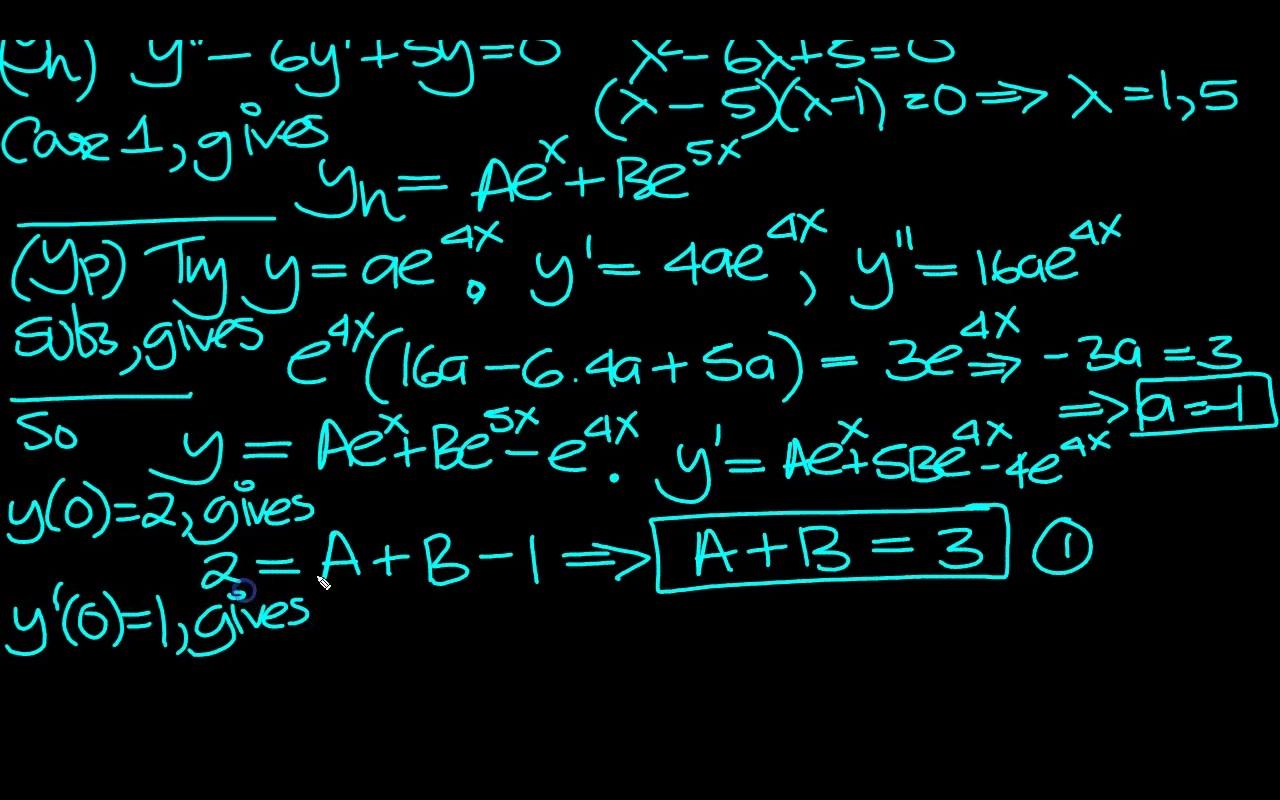 (yh) y'' - 6y' + 5y = 0    λ² - 6λ + 5 = 0
(λ - 5)(λ - 1) = 0 ⟹ λ = 1, 5
Case 1, gives
yh = Ae^x + Be^5x
(yp) Try y = ae^4x. y' = 4ae^4x, y'' = 16ae^4x
subs, gives
e^4x(16a - 6.4a + 5a) = 3e^4x ⟹ -3a = 3
⟹ a = -1
So y = Ae^x + Be^5x - e^4x. y' = Ae^x + 5Be^4x - 4e^4x
y(0)=2, gives
2 = A + B - 1 ⟹ A + B = 3 ①
y'(0)=1, gives